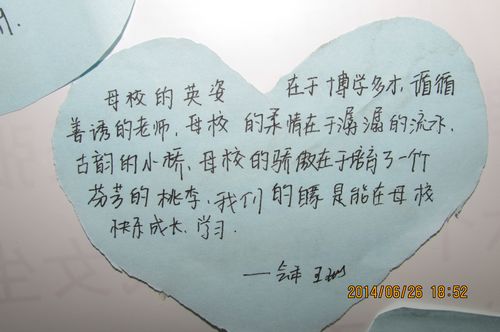 母校的英姿 在于博学多才,循循
善诱的老师,母校的柔情在于潺潺的流水,
古韵的小桥,母校的骄傲在于培育了一个个
芬芳的桃李,我们的 是能在母校
快乐成长、学习.
——
2014/06/26 18:52